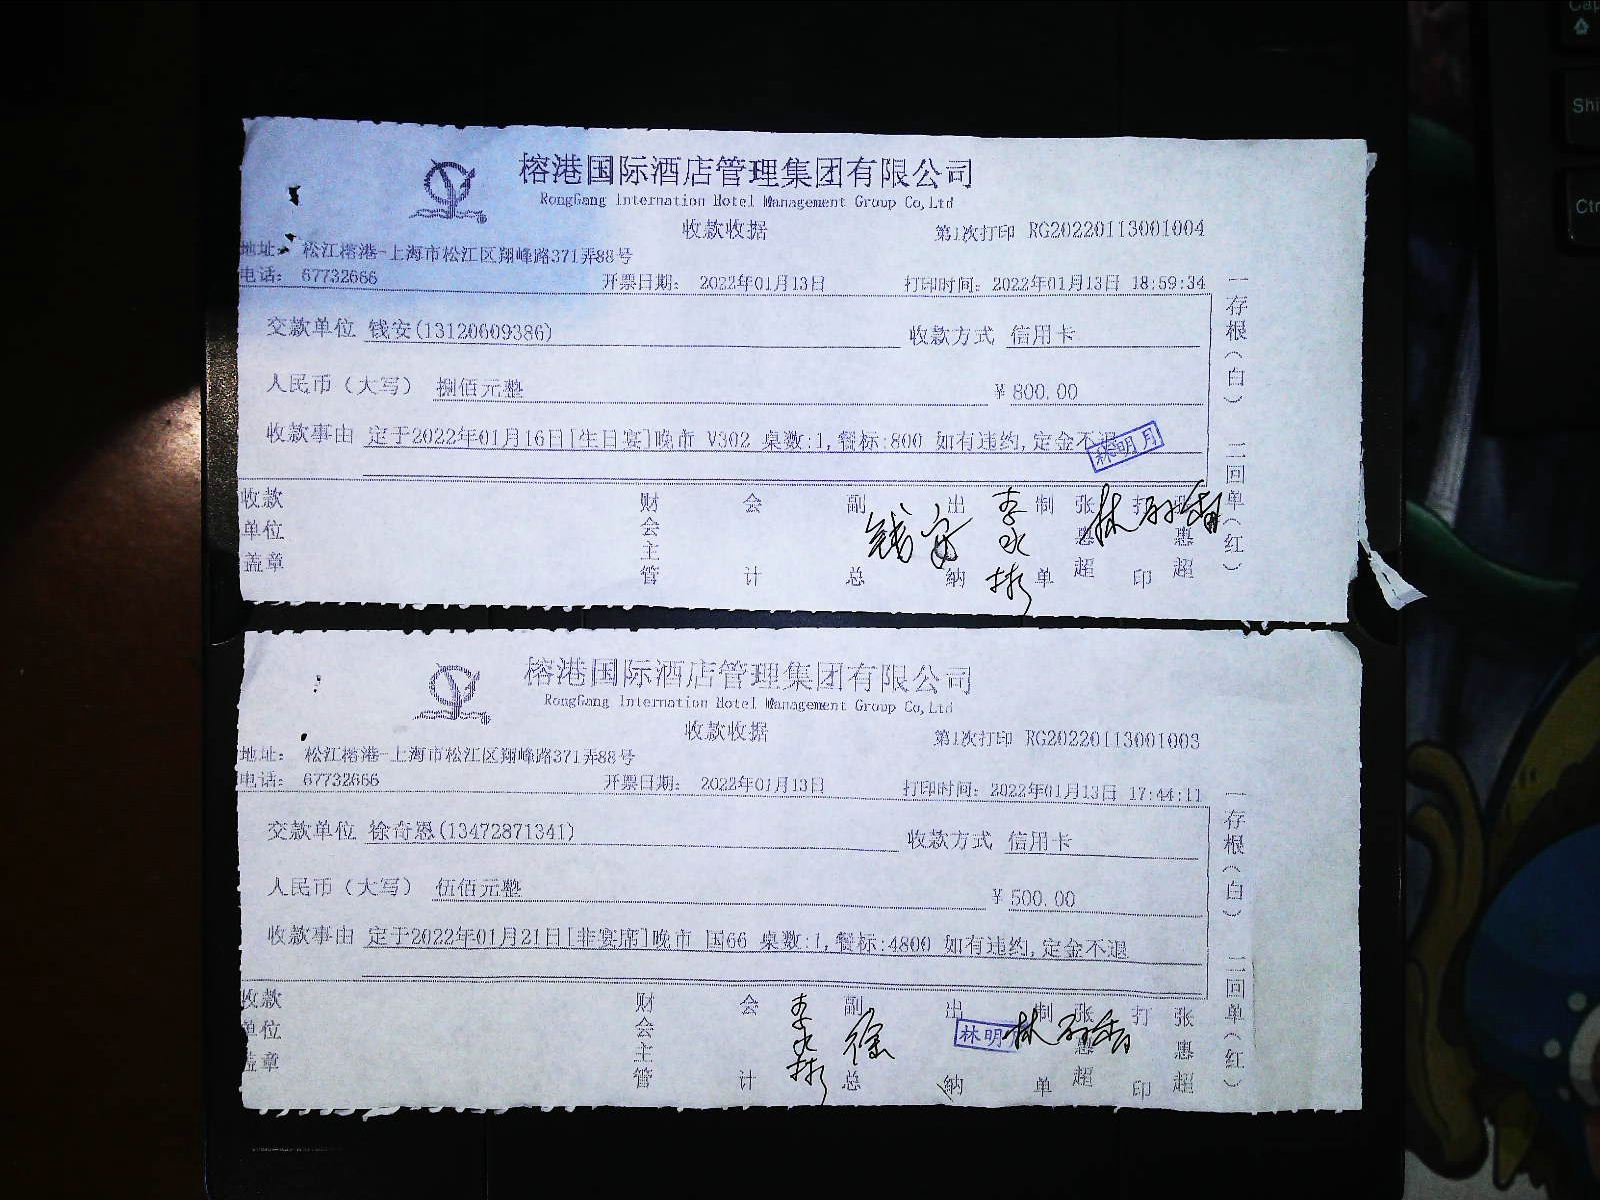 榕港国际酒店管理集团有限公司
RongGang Internation Hotel Management Group Co,Ltd
收款收据
第1次打印 RG20220113001004
地址： 松江榕港-上海市松江区翔峰路371弄88号
电话： 67732666 开票日期： 2022年01月13日 打印时间：2022年01月13日 18:59:34
交款单位 钱安(13120609386) 收款方式 信用卡
人民币（大写） 捌佰元整 ￥800.00
收款事由 定于2022年01月16日[生日宴]晚市 V302 桌数:1,餐标:800 如有违约,定金不退
林明月
收款单位盖章 财会主管 会计 副总 出纳 制单 张惠超 打印 张惠超
钱安 李水彬
一存根（白） 二回单（红）
榕港国际酒店管理集团有限公司
RongGang Internation Hotel Management Group Co,Ltd
收款收据
第1次打印 RG20220113001003
地址： 松江榕港-上海市松江区翔峰路371弄88号
电话： 67732666 开票日期： 2022年01月13日 打印时间：2022年01月13日 17:44:11
交款单位 徐奇恩(13472871341) 收款方式 信用卡
人民币（大写） 伍佰元整 ￥500.00
收款事由 定于2022年01月21日[非宴席]晚市 国66 桌数:1,餐标:4800 如有违约,定金不退
收款单位盖章 财会主管 会计 副总 出纳 制单 张惠超 打印 张惠超
李水彬 徐 林明
一存根（白） 二回单（红）
Shi